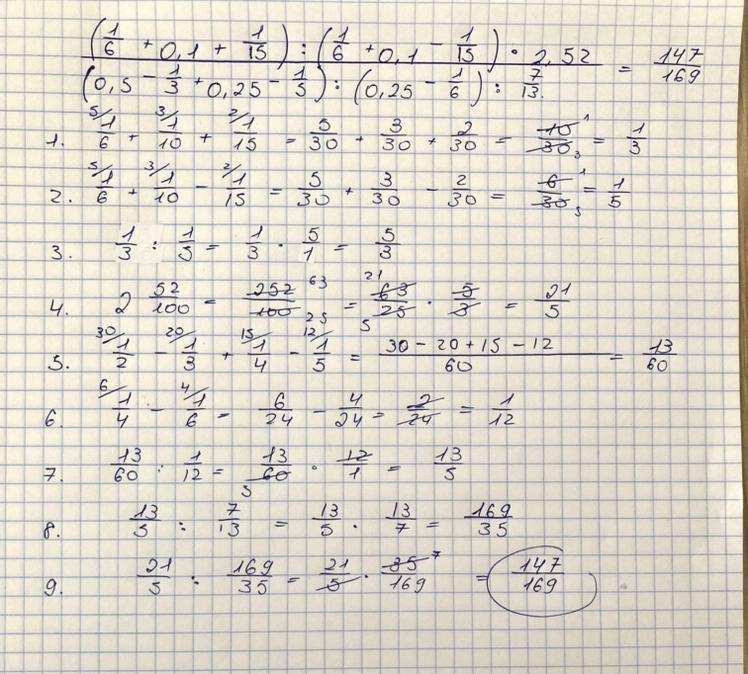 (1/6 + 0,1 + 1/15) : (1/6 + 0,1 - 1/15) · 2,52
(0,5 - 1/3 + 0,25 - 1/5) : (0,25 - 1/6) : 7/13 = 147/169
1. 5/ 1/6 + 3/ 1/10 + 2/ 1/15 = 5/30 + 3/30 + 2/30 = 10/30 1 3 = 1/3
2. 5/ 1/6 + 3/ 1/10 - 2/ 1/15 = 5/30 + 3/30 - 2/30 = 6/30 1 5 = 1/5
3. 1/3 : 1/5 = 1/3 · 5/1 = 5/3
4. 2 52/100 = 252/100 63 25 = 21 63/25 5 · 5/3 = 21/5
5. 30/ 1/2 - 20/ 1/3 + 15/ 1/4 - 12/ 1/5 = 30 - 20 + 15 - 12 / 60 = 13/60
6. 6/ 1/4 - 4/ 1/6 = 6/24 - 4/24 = 2/24 = 1/12
7. 13/60 : 1/12 = 13/60 5 · 12/1 = 13/5
8. 13/5 : 7/13 = 13/5 · 13/7 = 169/35
9. 21/5 : 169/35 = 21/5 · 35/169 7 = 147/169